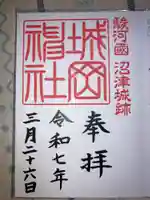 駿河國 沼津城跡
奉拝
城岡神社
令和七年
三月二十六日